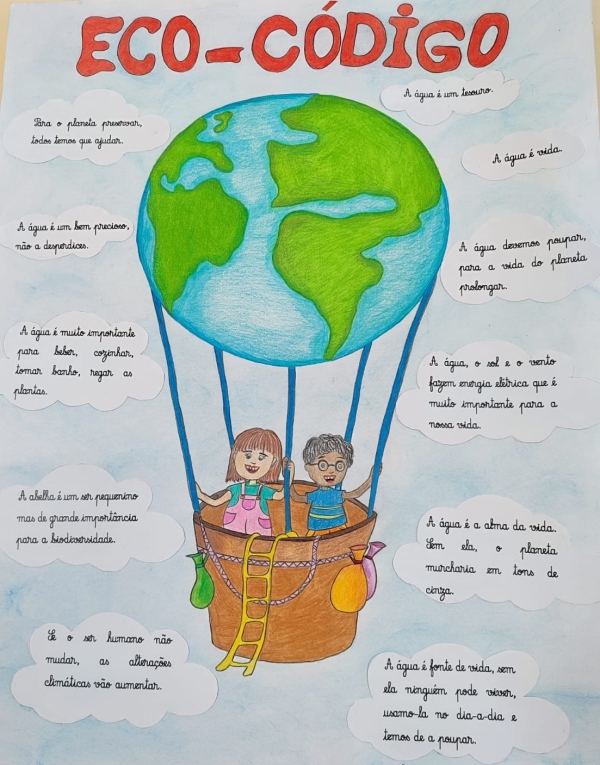 ECO-CÓDIGO
Para o planeta preservar,
todos temos que ajudar.
A água é um tesouro.
A água é vida.
A água é um bem precioso,
não a desperdices.
A água devemos poupar,
para a vida do planeta
prolongar.
A água é muito importante
para beber, cozinhar,
tomar banho, regar as
plantas.
A água, o sol e o vento
fazem energia elétrica que é
muito importante para a
nossa vida.
A abelha é um ser pequenino
mas de grande importância
para a biodiversidade.
A água é a alma da vida.
Sem ela, o planeta
murcharia em tons de
cinza.
Se o ser humano não
mudar, as alterações
climáticas vão aumentar.
A água é fonte de vida, sem
ela ninguém pode viver,
usamo-la no dia-a-dia e
temos de a poupar.